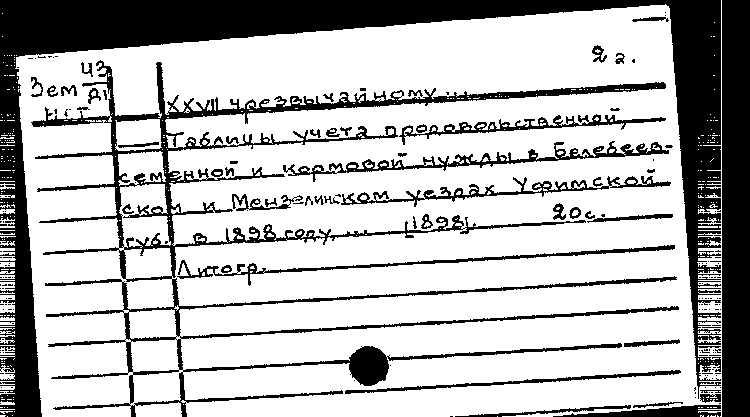 2 г.
Зем ЧЗ
XXVII чрезвычайному...
— Таблицы учета продовольственной,
семенной и кормовой нужды в Белебеев-
ском и Мензелинском уездах Уфимской
губ. в 1898 году, ... [1898]. 20 с.
Литогр.